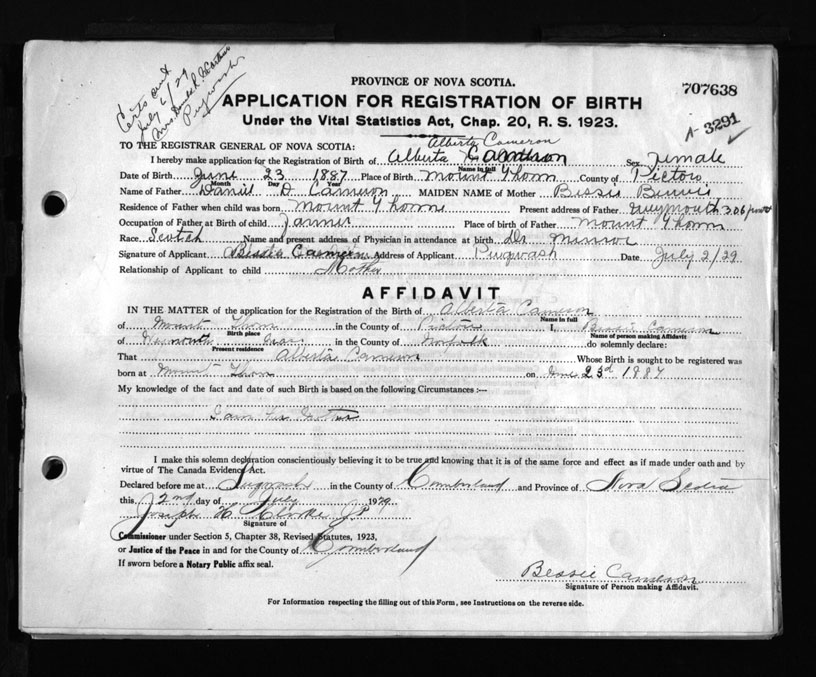 Certs sent
July 6/29
Mrs
Pugwash
PROVINCE OF NOVA SCOTIA.
707638
APPLICATION FOR REGISTRATION OF BIRTH
Under the Vital Statistics Act, Chap. 20, R. S. 1923.
A-3291
TO THE REGISTRAR GENERAL OF NOVA SCOTIA: Alberta Cameron
I hereby make application for the Registration of Birth of Alberta Cameron Sex Female
Name in full
Date of Birth June 23 1887 Place of Birth Mount Thom County of Pictou
Month Day Year
Name of Father Daniel D. Cameron MAIDEN NAME of Mother Bessie
Residence of Father when child was born Mount Thom Present address of Father
Occupation of Father at Birth of child Farmer Place of birth of Father Mount Thom
Race Scotch Name and present address of Physician in attendance at birth Dr Munroe
Signature of Applicant Bessie Cameron Address of Applicant Pugwash Date July 2/29
Relationship of Applicant to child Mother
AFFIDAVIT
IN THE MATTER of the application for the Registration of the Birth of Alberta Cameron
Name in full
of Mount Thom in the County of Pictou I, Bessie Cameron
Birth place Name of person making Affidavit
of in the County of Norfolk do solemnly declare:
Present residence
That Alberta Cameron Whose Birth is sought to be registered was
born at Mount Thom on June 23rd 1887
My knowledge of the fact and date of such Birth is based on the following Circumstances :—
I am her Mother
I make this solemn declaration conscientiously believing it to be true and knowing that it is of the same force and effect as if made under oath and by
virtue of The Canada Evidence Act.
Declared before me at Pugwash in the County of Cumberland and Province of Nova Scotia
this 2nd day of July 1929
Joseph H. Clarke J.P.
Signature of
Commissioner under Section 5, Chapter 38, Revised Statutes, 1923,
or Justice of the Peace in and for the County of Cumberland
If sworn before a Notary Public affix seal.
Bessie Cameron
Signature of Person making Affidavit.
For Information respecting the filling out of this Form, see Instructions on the reverse side.